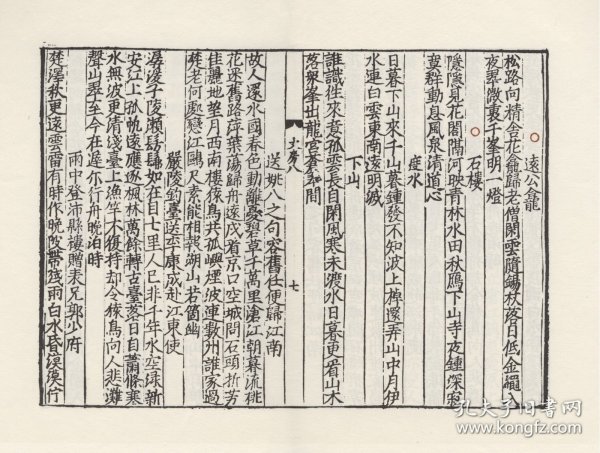 遠公龕
松路向精舍花龕歸老僧閒雲隨錫杖落日低金繩入
夜翠微裏千峯明一燈
石樓
隱隱見花閣隔河映青林水田秋鴈下山寺夜鐘深寂
寞群動息風泉清道心
渡水
日暮下山來千山暮鐘發不知波上棹還弄山中月伊
水連白雲東南遠明滅
下山
誰識往來意孤雲長自閑風寒未渡水日暮更看山木
落衆峯出龍宮蒼翠間
七
送姚八之句容舊任便歸江南
故人還水國春色動離憂碧草千萬里滄江朝暮流桃
花迷舊路萍葉蕩歸舟遠戍看京口空城問石頭折芳
佳麗地望月西南樓猿鳥共孤嶼煙波連數州誰家過
楚老何處戀江鷗尺素能相報湖山若箇幽
嚴陵釣臺送李康成赴江東使
潺湲子陵瀨髣髴如在目七里人已非千年水空綠新
安江上孤帆遠應逐楓林萬餘轉古臺落日自蕭條寒
水無波更清淺臺上漁竿不復持却令猿鳥向人悲灘
聲山翠至今在遲爾行舟晚泊時
雨中登沛縣樓贈表兄郭少府
楚澤秋更遠雲雷有時作晚陂帶殘雨白水昏漠漠行
孔夫子旧书网
www.kongfz.com